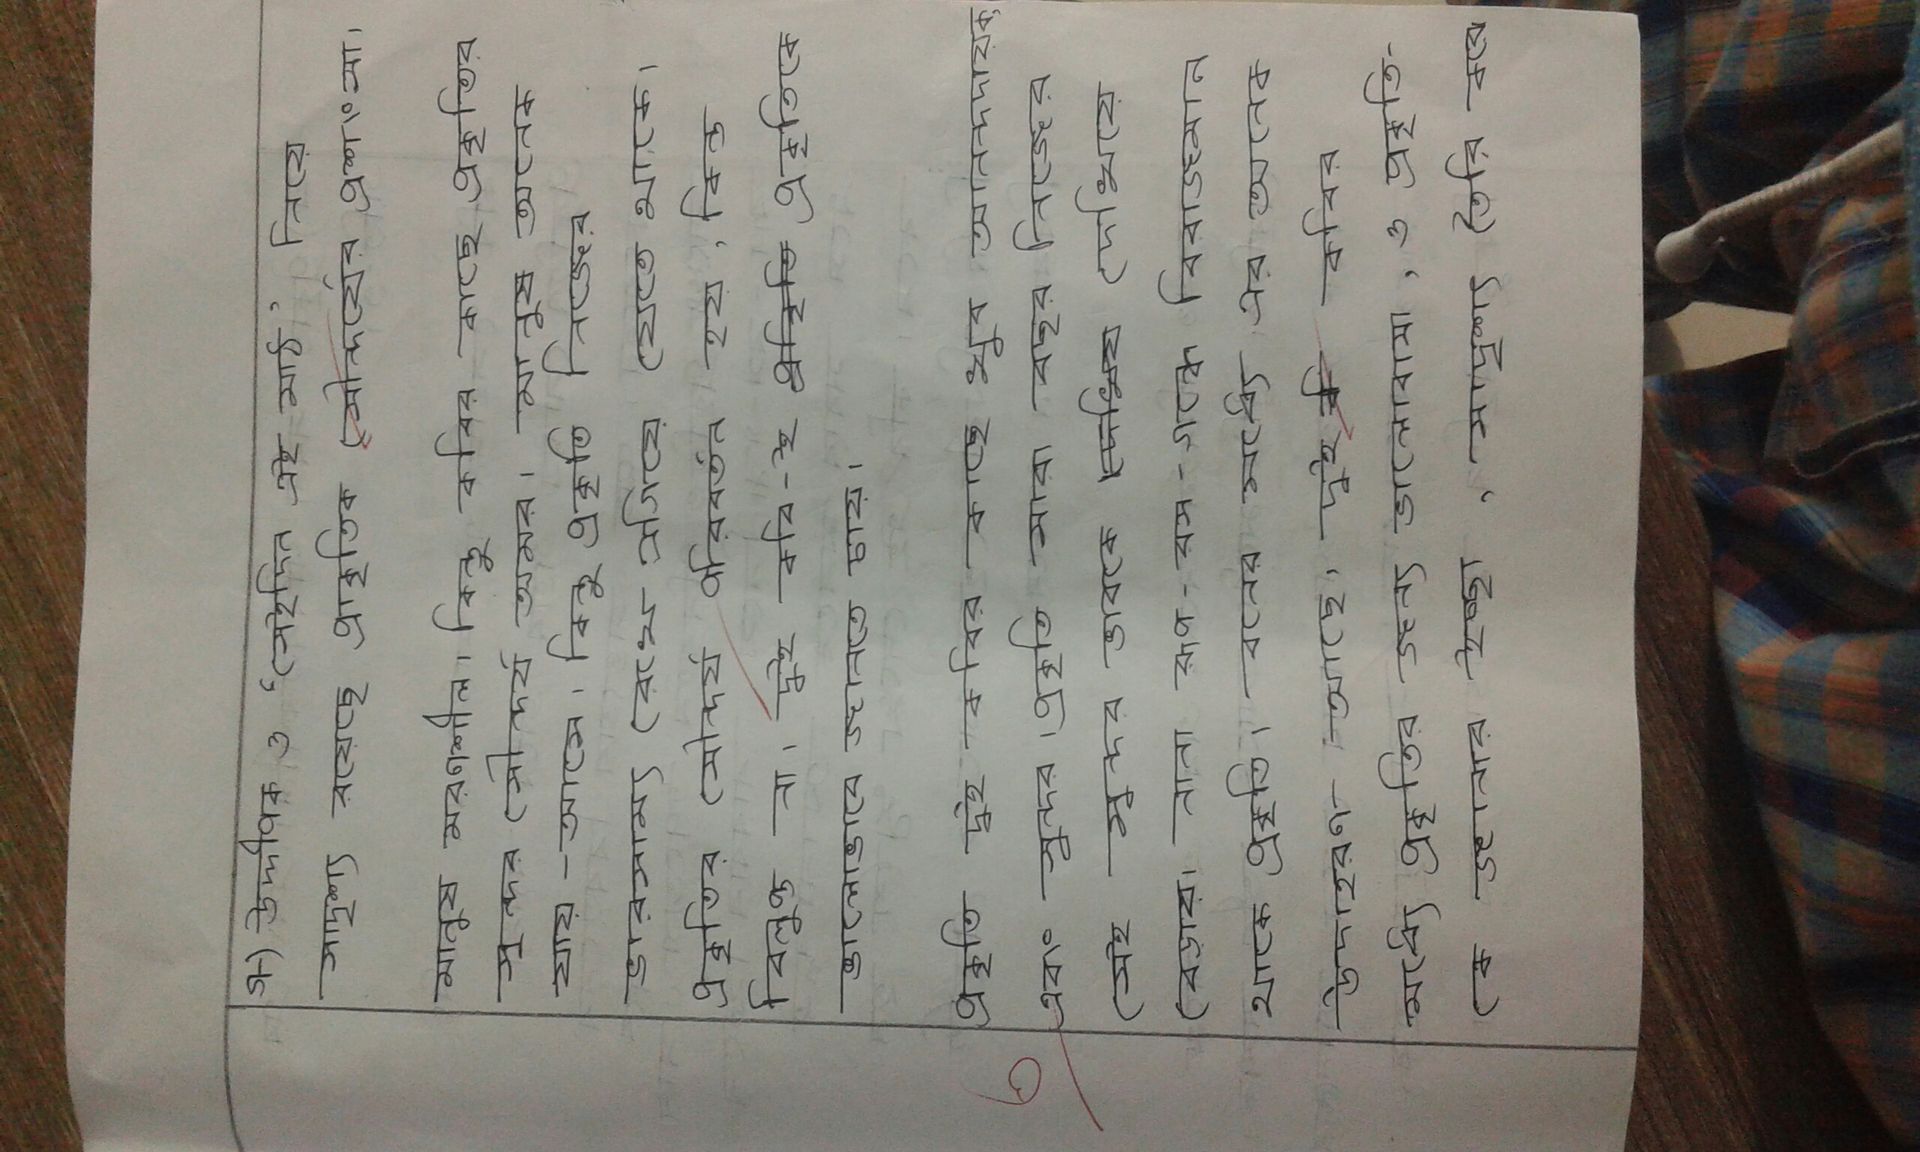 গ) উদ্দীপক ও ‘সেইদিন এই মাঠ’ নিয়ে
সাদৃশ্য রয়েছে প্রাকৃতিক সৌন্দর্যের প্রশংসা।
মানুষ মরণশীল। কিন্তু কবির কাছে প্রকৃতির
সুন্দর সৌন্দর্য অমর। মানুষ অনেক
যায় -আসে। কিন্তু প্রকৃতি নিজের
ভারসাম্য রেখে এগিয়ে যেতে থাকে।
প্রকৃতির সৌন্দর্য পরিবর্তন হয়, কিন্ত
বিলুপ্ত না। দুই কবি-ই প্রকৃতি প্রকৃতিকে
ভালোভাবে জানতে চায়।
প্রকৃতি দুই -কবির কাছে খুব আনন্দদায়ক
এবং সুন্দর। প্রকৃতি সারা বছর নিজের
সেই সুন্দর ভাবকে দেখিয়ে
বেড়ায়। নানা রূপ-রস-গন্ধে বিরাজমান
থাকে প্রকৃতি। বনের মধ্যে এর অনেক
উদাহরণ আছে। দুই কবির
মধ্যে প্রকৃতির জন্য ভালোবাসা, ও প্রকৃতি-
কে জানার ইচ্ছা, সাদৃশ্য তৈরি করে
৩